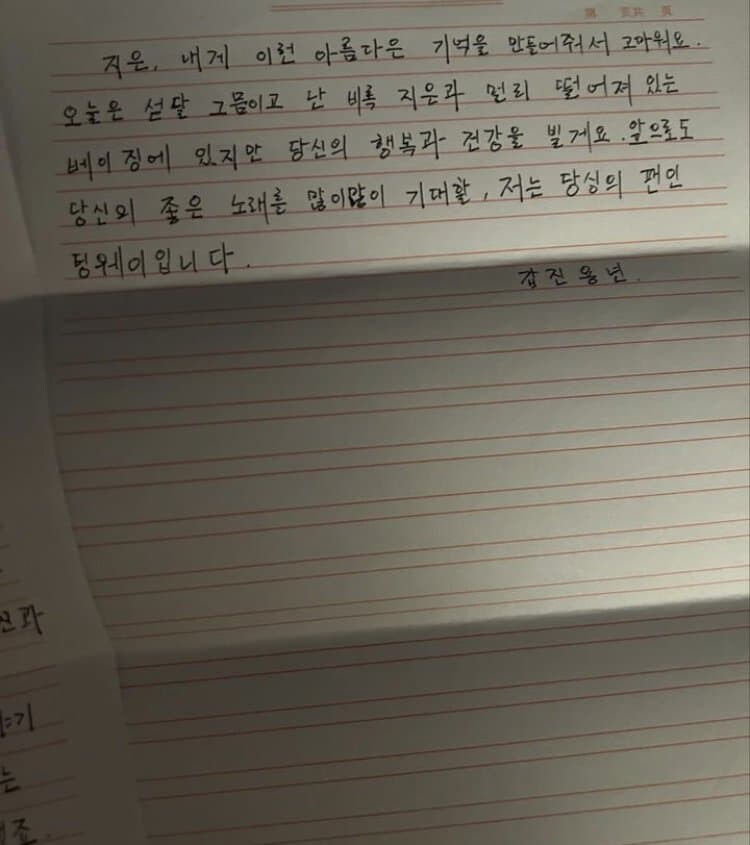 第 页共 页
지은, 내게 이런 아름다운 기억을 만들어줘서 고마워요.
오늘은 섣달 그믐이고 난 비록 지은과 멀리 떨어져 있는
베이징에 있지만 당신의 행복과 건강을 빌게요. 앞으로도
당신의 좋은 노래를 많이많이 기대할, 저는 당신의 팬인
딩웨이입니다.
갑진용년.
과
기
는